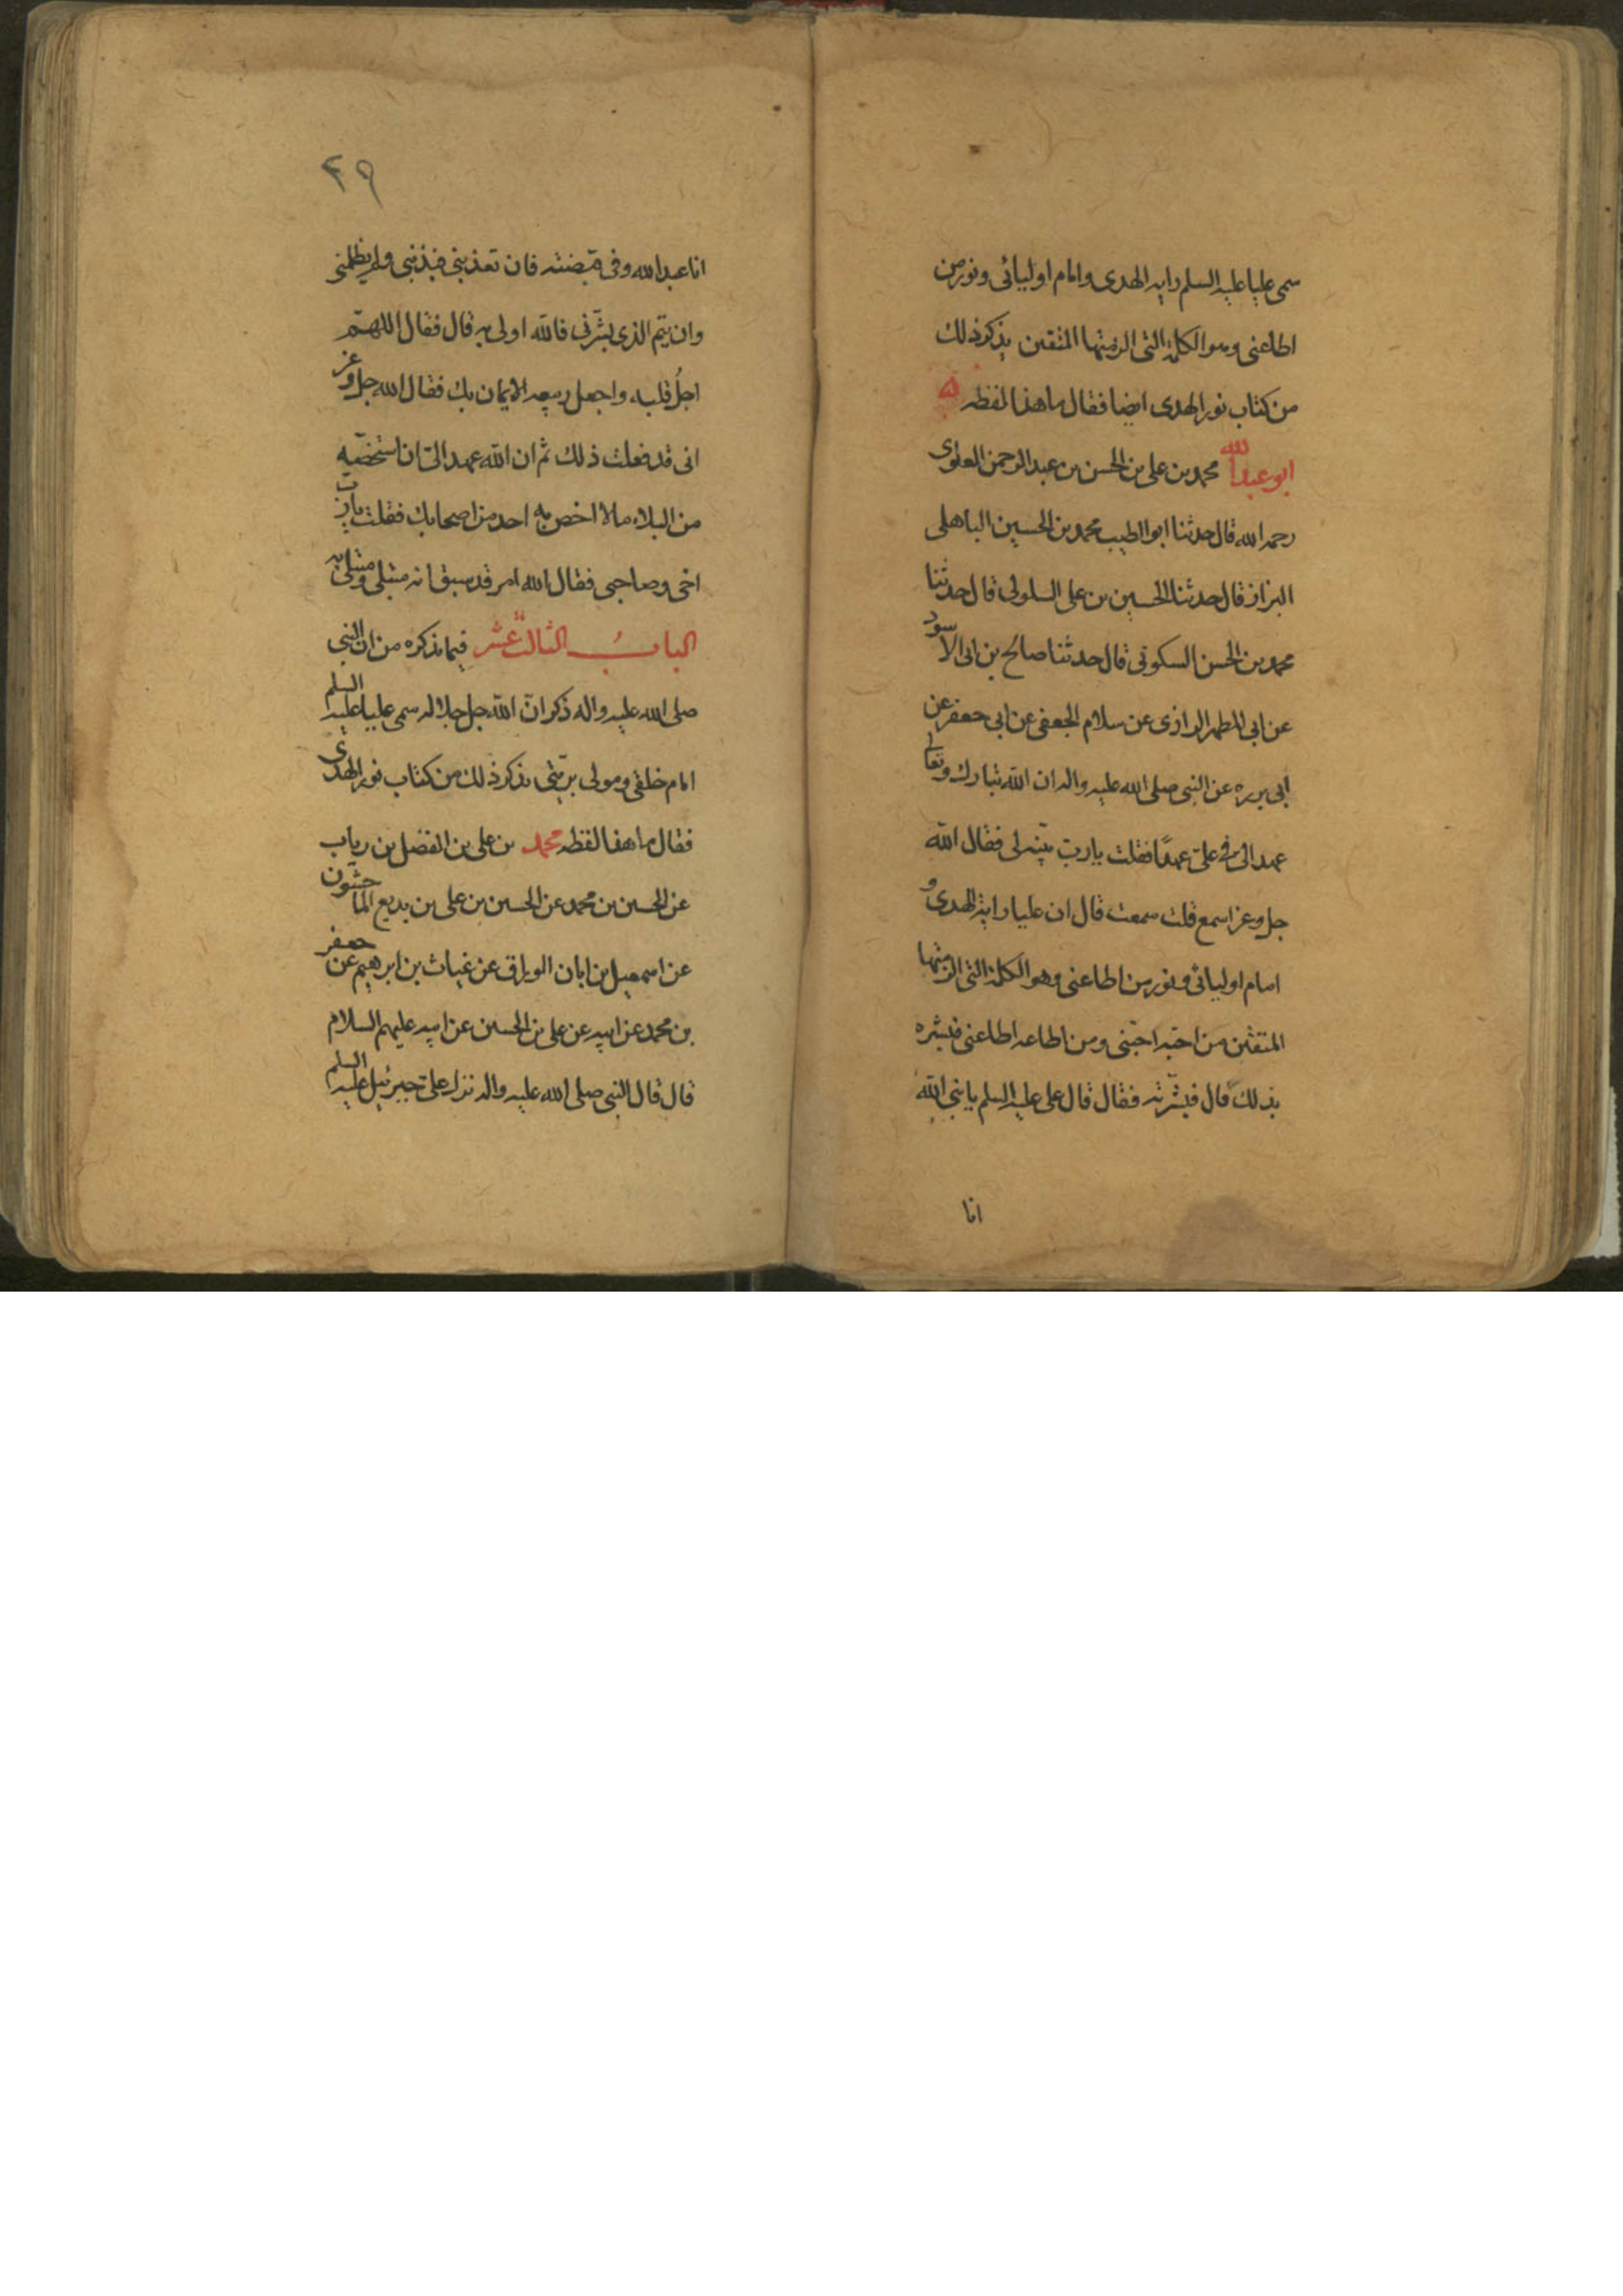 سمى عليا عليه السلم راية الهدى وامام اوليائى ونور من
اطاعنى وهو الكلمة التى الزمتها المتقين يذكر ذلك
من كتاب نور الهدى ايضا فقال ما هذا لفظه
ابو عبد الله محمد بن على بن الحسن بن عبد الرحمن العلوى
رحمه الله قال حدثنا ابو الطيب محمد بن الحسين الباهلى
البزاز قال حدثنا الحسين بن على السلولى قال حدثنا
محمد بن الحسن السكونى قال حدثنا صالح بن ابى الاسود
عن ابى المطهر الرازى عن سلام الجعفى عن ابى جعفر عن
ابى برزه عن النبى صلى الله عليه واله ان الله تبارك وتعالى
عهد الى فى على عهدًا فقلت يا رب بيّنه لى فقال الله
جل وعز اسمع قلت سمعت قال ان عليا راية الهدى و
امام اوليائى ونور من اطاعنى وهو الكلمة التى الزمتها
المتقين من احبّه احبّنى ومن اطاعه اطاعنى فبشره
بذلك قال فبشّرته فقال قال على عليه السلم يا نبى الله
انا
٤٩
انا عبد الله وفى قبضته فان تعذبنى فبذنبى ولم يظلمنى
وان يتم الذى بشّرنى فالله اولى به قال فقال اللهم
اجلُ قلبه واجعل ربيعه الايمان بك فقال الله جل وعز
انى قد فعلت ذلك ثم ان الله عهد الىّ ان استخصّه
من البلاء ما لا اخص به احد من اصحابك فقلت يا ربّ
اخى وصاحبى فقال الله امر قد سبق انه مبتلى ومبتلى به
البابُ الثالث عشر فيما نذكره من ان النبى
صلى الله عليه واله ذكر انّ الله جل جلاله سمى عليا عليه السلم
امام خلقى ومولى بريّتى نذكر ذلك من كتاب نور الهدى
فقال ما هذا لفظه محمد بن على بن الفضل بن رباب
عن الحسين بن محمد عن الحسين بن على بن بديع الماجشون
عن اسمعيل بن ابان الوراق عن غياث بن ابرهيم عن جعفر
بن محمد عن ابيه عن على بن الحسين عن ابيه عليهم السلام
قال قال النبى صلى الله عليه واله نزل علىّ جبرئيل عليه السلم